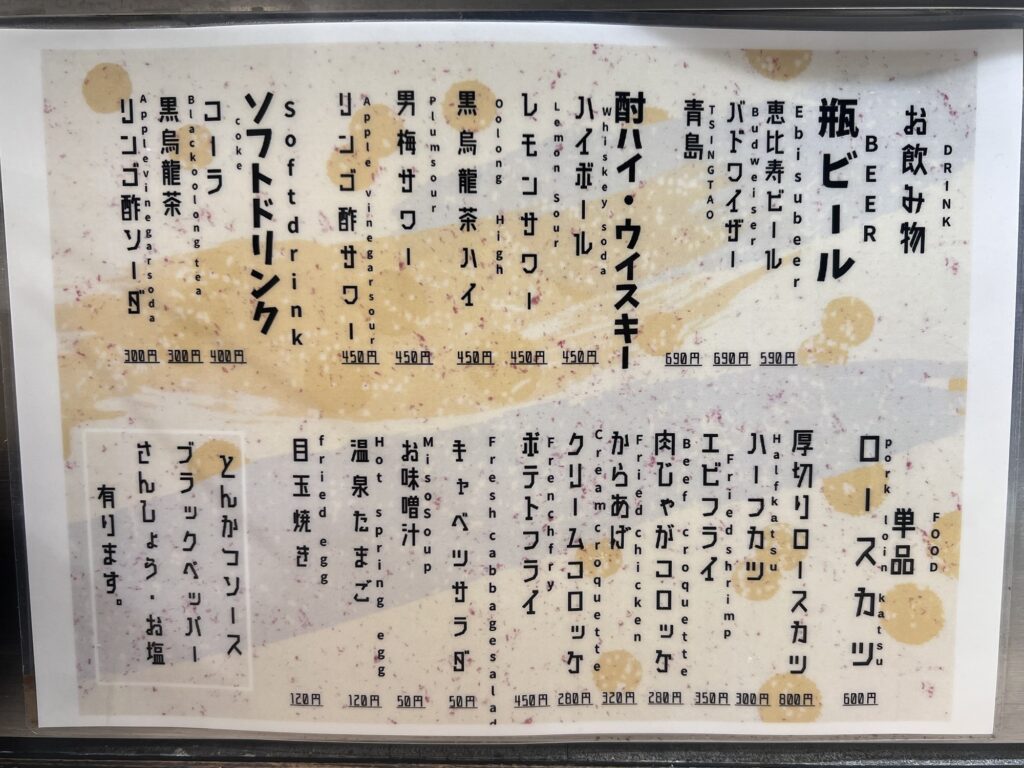 お飲み物
DRINK
瓶ビール
BEER
恵比寿ビール
Ebisubeer
590円
バドワイザー
Budweiser
690円
青島
TSINGTAO
690円
酎ハイ・ウイスキー
ハイボール
Whiskey soda
450円
レモンサワー
Lemon sour
450円
黒烏龍茶ハイ
Oolong High
450円
男梅サワー
Plumsour
450円
リンゴ酢サワー
Apple vinegarsour
450円
ソフトドリンク
Softdrink
コーラ
coke
400円
黒烏龍茶
Blackoolongtea
300円
リンゴ酢ソーダ
Applevinegarsoda
300円
単品
FOOD
ロースカツ
pork loin katsu
600円
厚切りロースカツ
800円
ハーフカツ
Halfkatsu
300円
エビフライ
Friedshrimp
350円
肉じゃがコロッケ
Beef croquette
280円
からあげ
Friedchicken
320円
クリームコロッケ
Creamcroquette
280円
ポテトフライ
Frenchfry
450円
キャベツサラダ
Freshcabbagesalad
50円
お味噌汁
MisoSoup
50円
温泉たまご
Hot spring egg
120円
目玉焼き
fried egg
120円
とんかつソース
ブラックペッパー
さんしょう・お塩
有ります。